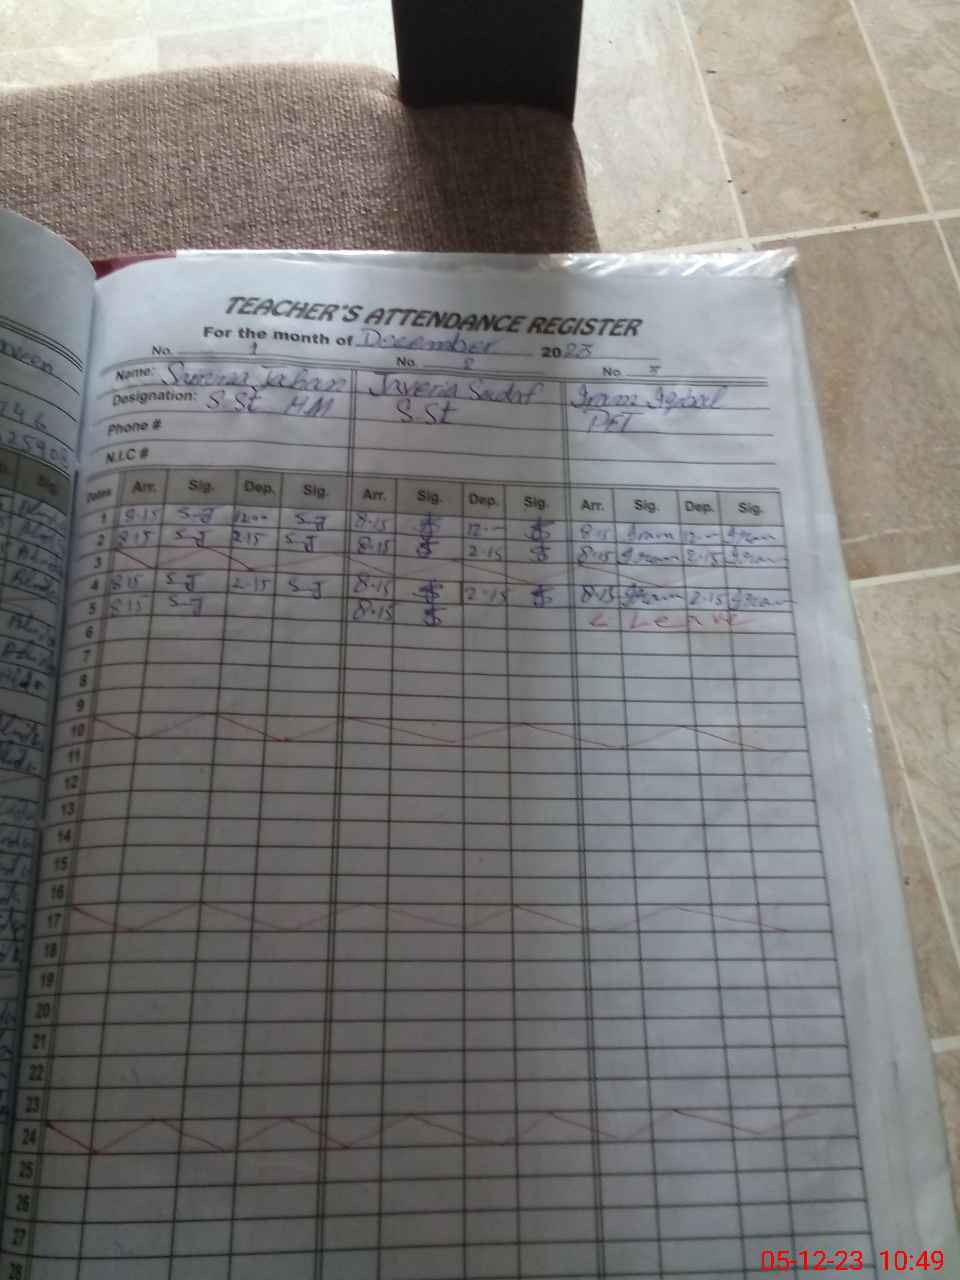 TEACHER'S ATTENDANCE REGISTER
For the month of December 2023
No. 1 No. 2 No. 3
Name: Samina Jahan Javeria Sadaf Iram Iqbal
Designation: S.St HM S.St PET
Phone #
N.I.C #
Dates Arr. Sig. Dep. Sig. Arr. Sig. Dep. Sig. Arr. Sig. Dep. Sig.
1 8.15 S-J 12.-- S-J 8.15 12.-- 8.15 Iram 12.-- Iram
2 8.15 S-J 2.15 S-J 8.15 2.15 8.15 Iram 2.15 Iram
3
4 8.15 S-J 2.15 S-J 8.15 2.15 8.15 Iram 2.15 Iram
5 8.15 S-J 8.15 C Leave
6
7
8
9
10
11
12
13
14
15
16
17
18
19
20
21
22
23
24
25
26
27
28
05-12-23 10:49